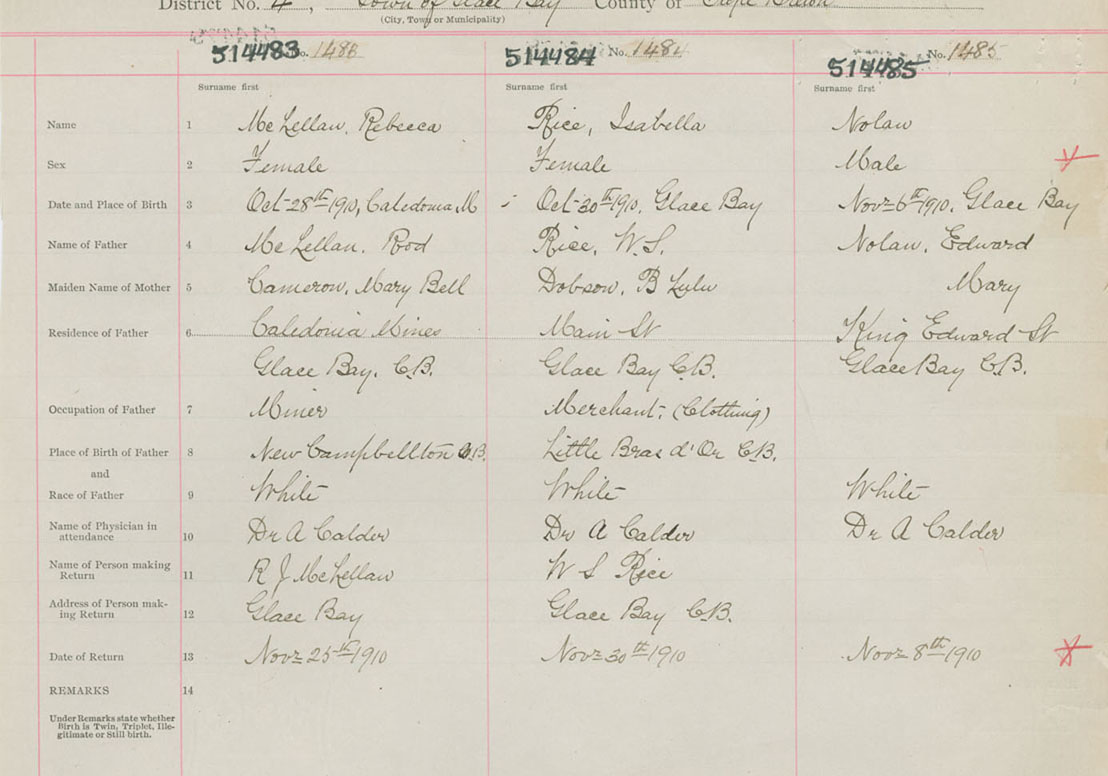 District No. 4, Town of Glace Bay County of Cape Breton
(City, Town or Municipality)
514483 No. 1483 514484 No. 1484 514485 No. 1485
Surname first Surname first Surname first
Name 1 McLellan, Rebecca Rice, Isabella Nolan
Sex 2 Female Female Male
Date and Place of Birth 3 Oct 28th 1910, Caledonia M Oct 30th 1910, Glace Bay Nov 6th 1910, Glace Bay
Name of Father 4 McLellan, Rod Rice, W.S. Nolan, Edward
Maiden Name of Mother 5 Cameron, Mary Bell Dobson, B Lulu Mary
Residence of Father 6 Caledonia Mines Main St King Edward St
Glace Bay, C.B. Glace Bay C.B. Glace Bay C.B.
Occupation of Father 7 Miner Merchant, (Clothing)
Place of Birth of Father 8 New Campbellton C.B. Little Bras d'Or C.B.
and
Race of Father 9 White White White
Name of Physician in
attendance 10 Dr A Calder Dr A Calder Dr A Calder
Name of Person making
Return 11 R J McLellan W S Rice
Address of Person mak-
ing Return 12 Glace Bay Glace Bay C.B.
Date of Return 13 Nov 25th 1910 Nov 30th 1910 Nov 8th 1910
REMARKS 14
Under Remarks state whether
Birth is Twin, Triplet, Ille-
gitimate or Still birth.